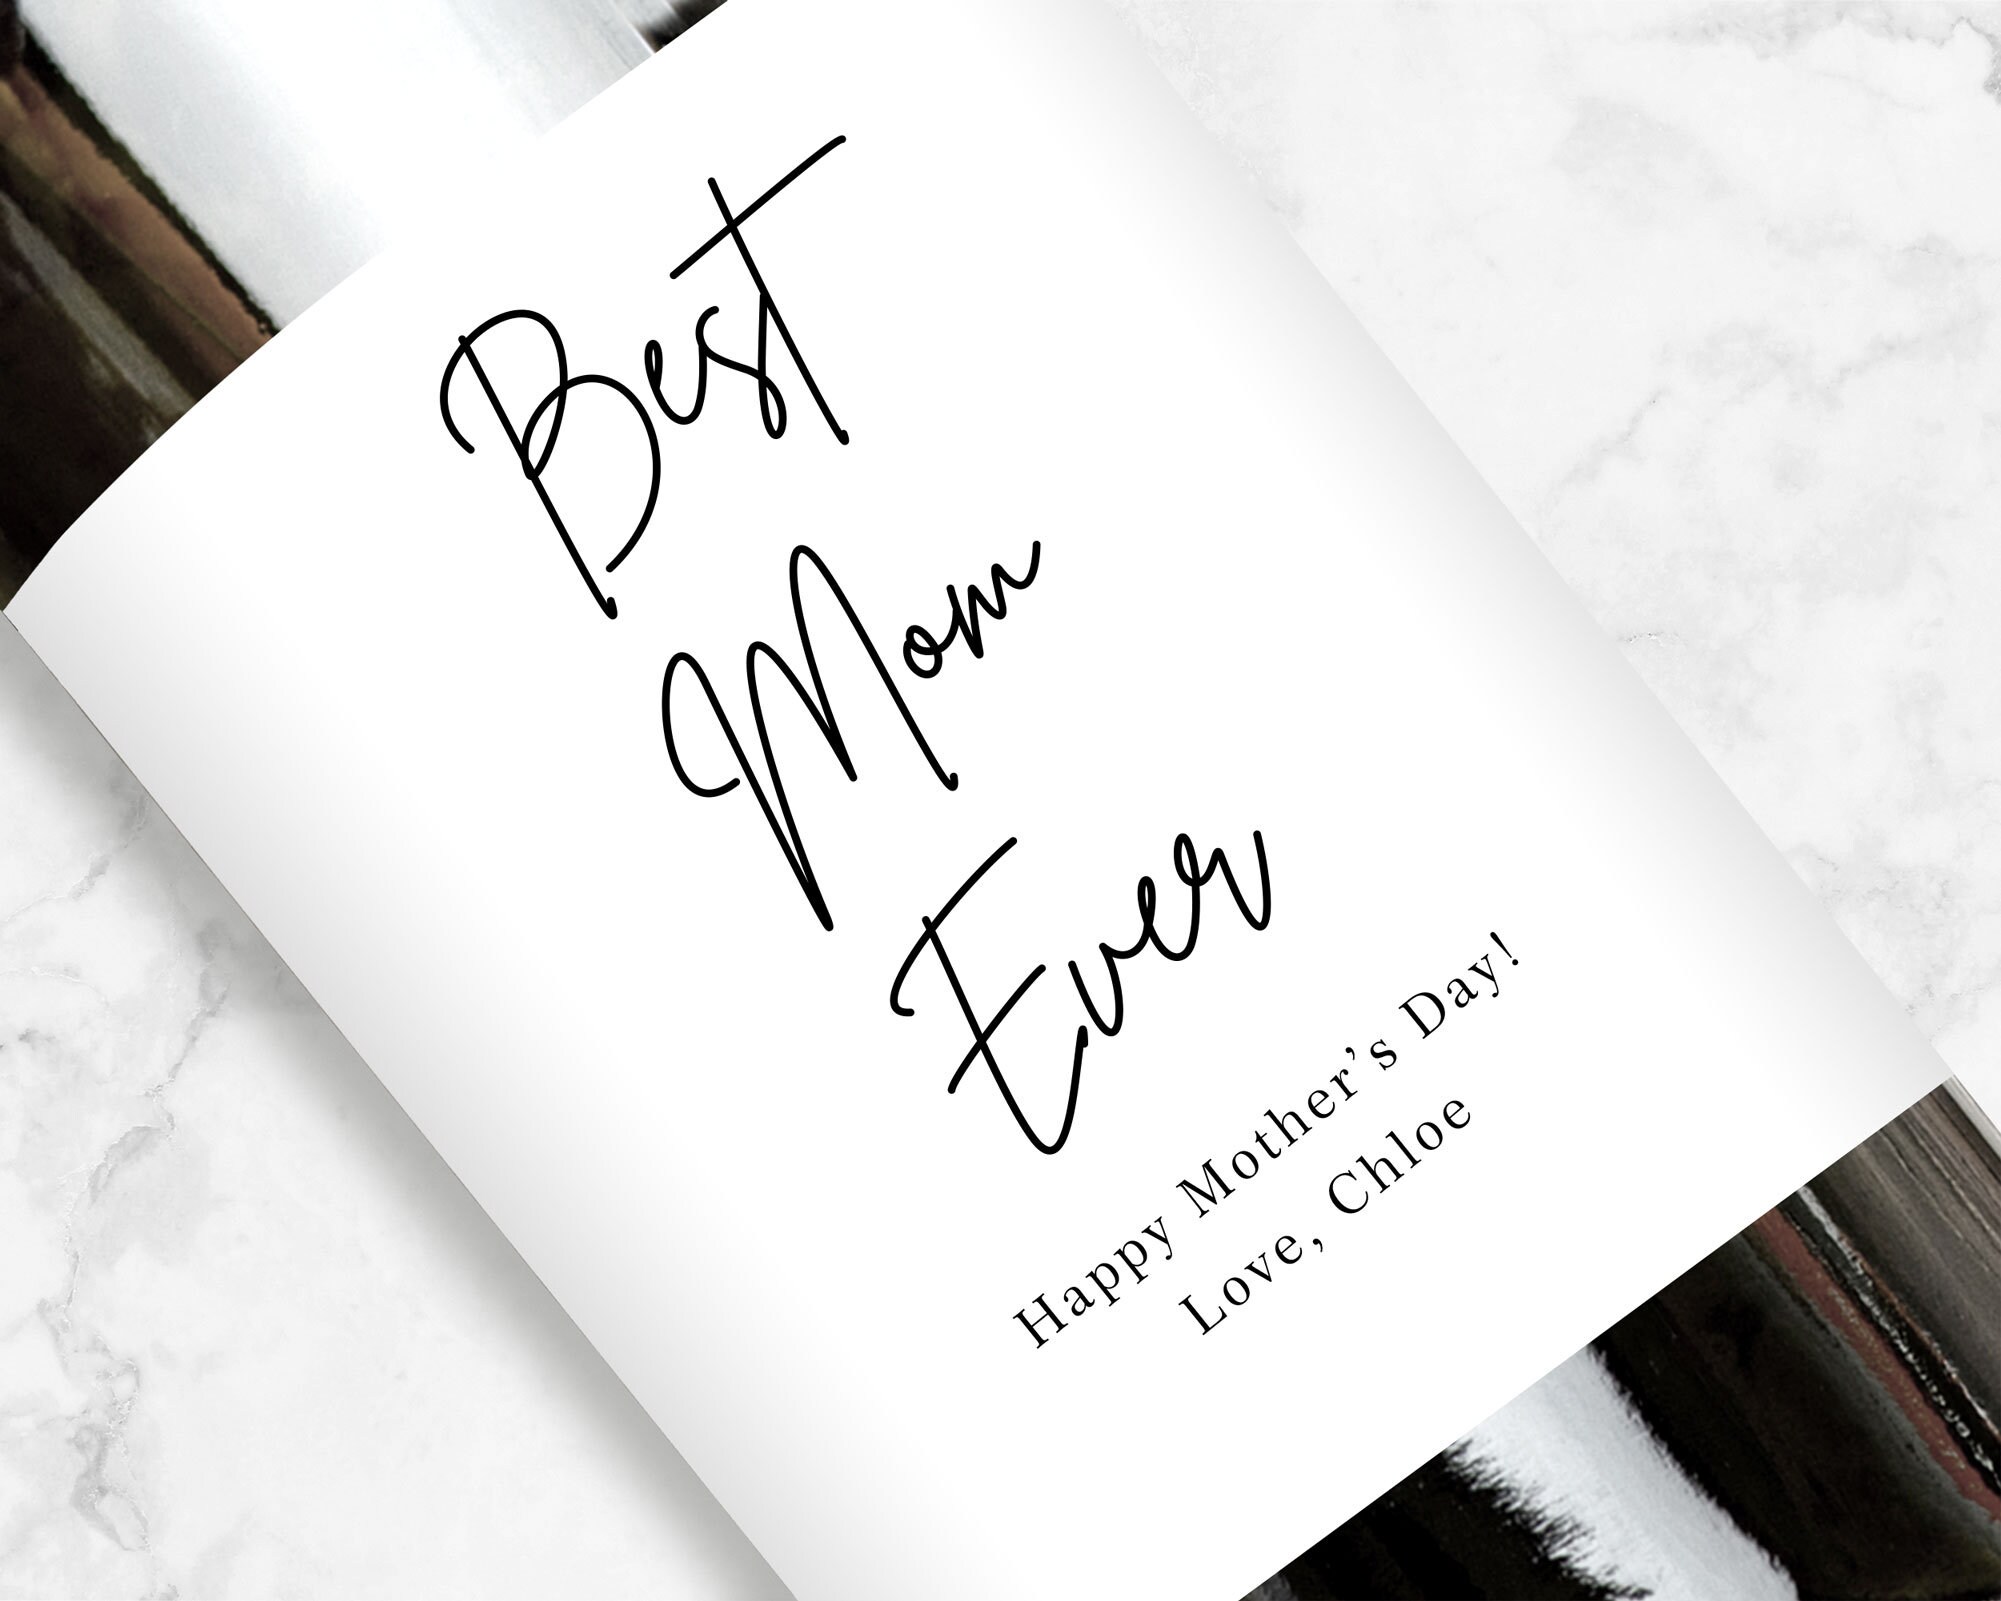 Best
Mom
Ever
Happy Mother’s Day!
Love, Chloe